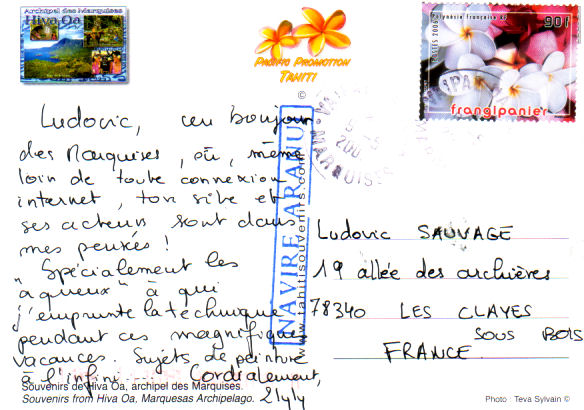 Archipel des Marquises
Hiva Oa
PACIFIC PROMOTION
TAHITI
©
Polynésie française RF
90F
POSTES 2005
frangipanier
Ludovic, un bonjour
des Marquises, où, même
loin de toute connexion
internet, ton site et
ses acteurs sont dans
mes pensées !
"Spécialement les
aqueux" à qui
j'emprunte la technique
pendant ces magnifiques
vacances. Sujets de peinture
à l'infini.... Cordialement,
NAVIRE ARANUI
www.tahitisouvenirs.com
Ludovic SAUVAGE
19 allée des archières
78340 LES CLAYES
SOUS BOIS
FRANCE
Souvenirs de Hiva Oa, archipel des Marquises.
Souvenirs from Hiva Oa, Marquesas Archipelago.
Photo : Teva Sylvain ©